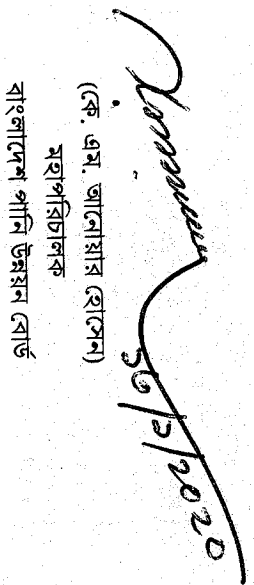 ১৬/১/২০২০
(কে. এম. আনোয়ার হোসেন)
মহাপরিচালক
বাংলাদেশ পানি উন্নয়ন বোর্ড